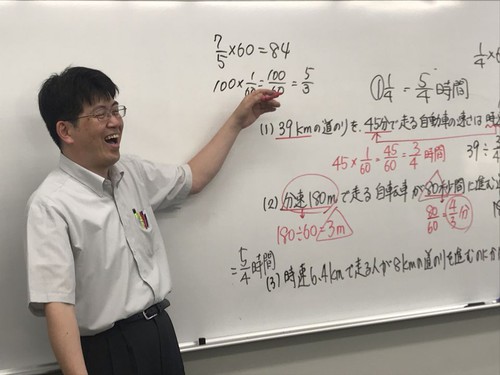 7/5×60=84
100×1/60=100/60=5/3
1 1/4=5/4時間
1/4×6
(1) 39kmの道のりを、45分で走る自動車の速さは時速
45×1/60=45/60=3/4時間
39÷3
(2) 分速180mで走る自転車が80秒間に進む道
180÷60=3m
80/60=4/3分
=5/4時間
(3) 時速6.4kmで走る人が8kmの道のりを進むのにか